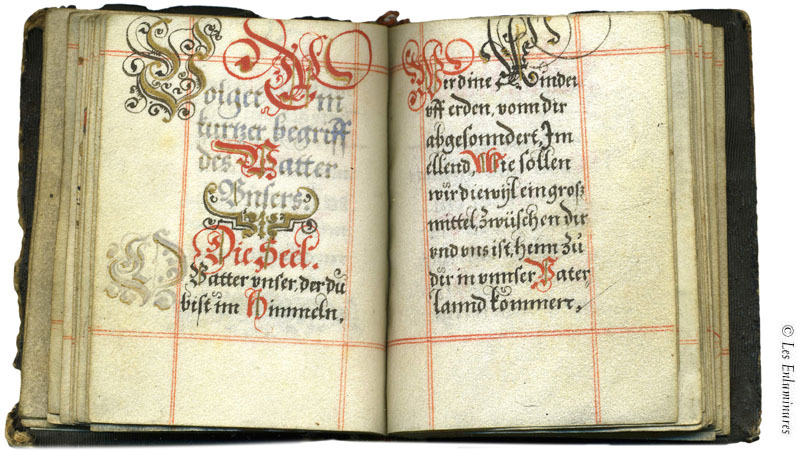 Volget Ein
kurtzer begriff
des Vatter
Vnsers.
Die Seel.
Vatter vnser, der du
bist im Himmeln,
Wer dine Kinder
vff erden, vonn dir
abgesonndert, Im
ellend, Wie sollen
wir diewyl ein groß
mittel, zwüschen dir
vnd vns ist, henn zů
dir in vnnser Vater-
lannd kommen.
© Les Enluminures